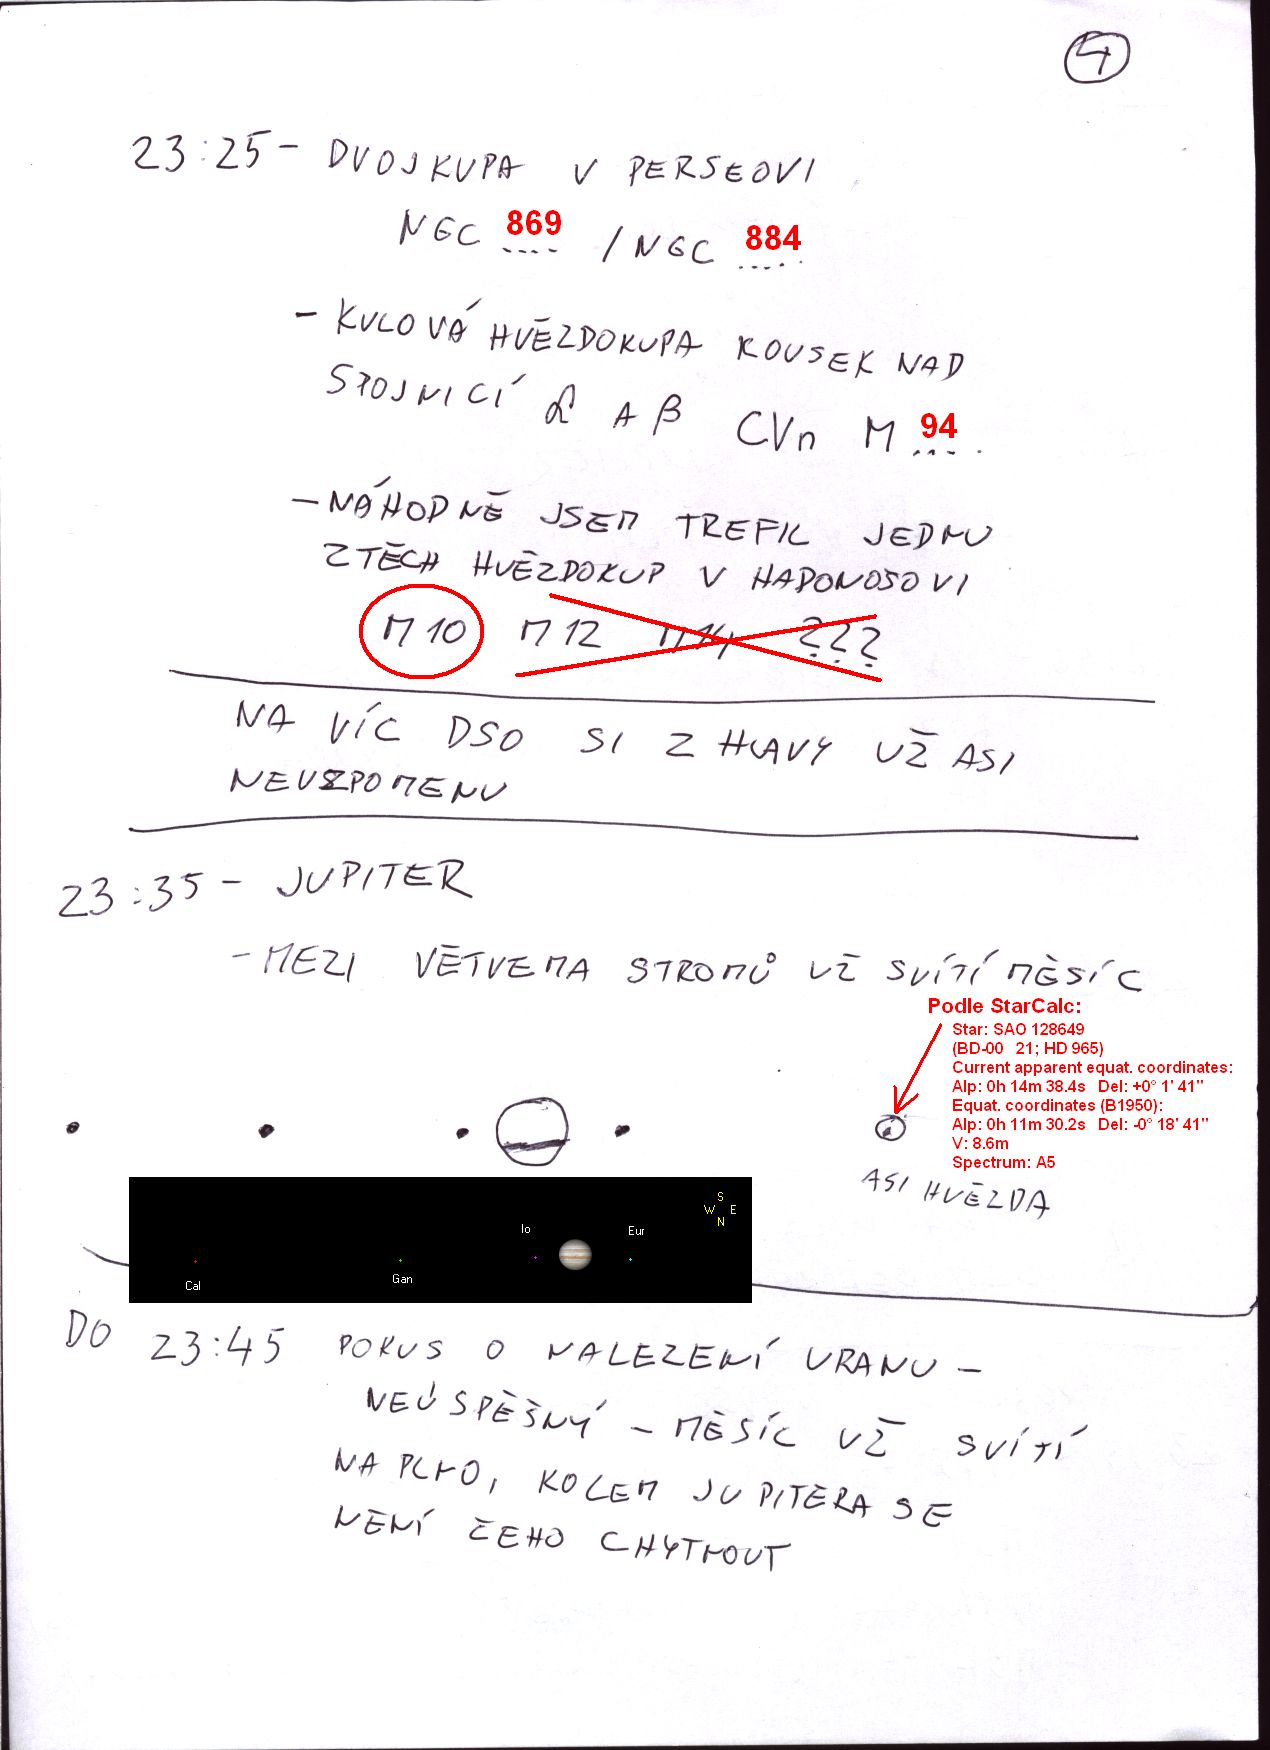 4
23:25 - DVOJKUPA V PERSEOVI
NGC 869 / NGC 884
- KULOVÁ HVĚZDOKUPA KOUSEK NAD
SPOJNICÍ α A β CVn M 94
- NÁHODNĚ JSEM TREFIL JEDNU
Z TĚCH HVĚZDOKUP V HADONOŠOVI
M 10 M 12 M 14 ???
NA VÍC DSO SI Z HLAVY UŽ ASI
NEVZPOMENU
23:35 - JUPITER
- MEZI VĚTVEMA STROMŮ UŽ SVÍTÍ MĚSÍC
Podle StarCalc:
Star: SAO 128649
(BD-00 21; HD 965)
Current apparent equat. coordinates:
Alp: 0h 14m 38.4s Del: +0° 1' 41"
Equat. coordinates (B1950):
Alp: 0h 11m 30.2s Del: -0° 18' 41"
V: 8.6m
Spectrum: A5
ASI HVĚZDA
S
W E
N
Io Eur
Cal Gan
DO 23:45 POKUS O NALEZENÍ URANU -
NEÚSPĚŠNÝ - MĚSÍC UŽ SVÍTÍ
NAPLNO, KOLEM JUPITERA SE
NENÍ ČEHO CHYTNOUT